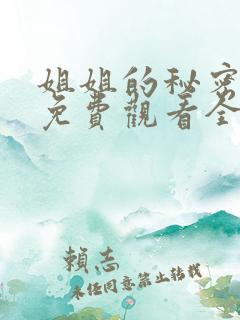 姐姐的秘密
免費觀看全
賴志
未任同意禁止转载